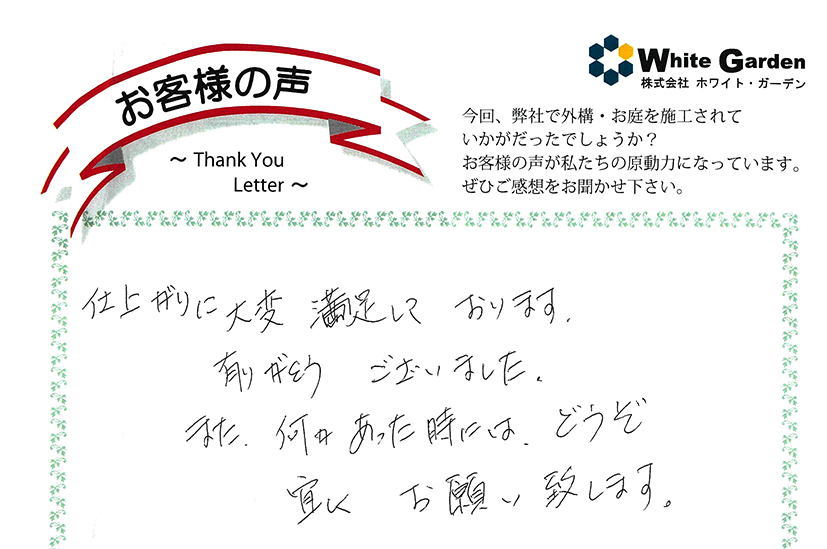 お客様の声
〜 Thank You
Letter 〜
White Garden
株式会社 ホワイト・ガーデン
今回、弊社で外構・お庭を施工されて
いかがだったでしょうか？
お客様の声が私たちの原動力になっています。
ぜひご感想をお聞かせ下さい。
仕上がりに大変満足しております.
有りがとう ございました.
また. 何かあった時には. どうぞ
宜しく お願い致します。